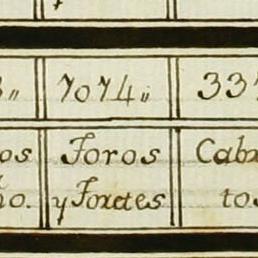 7074,,
33
os Toros Cab
o. y Toretes to